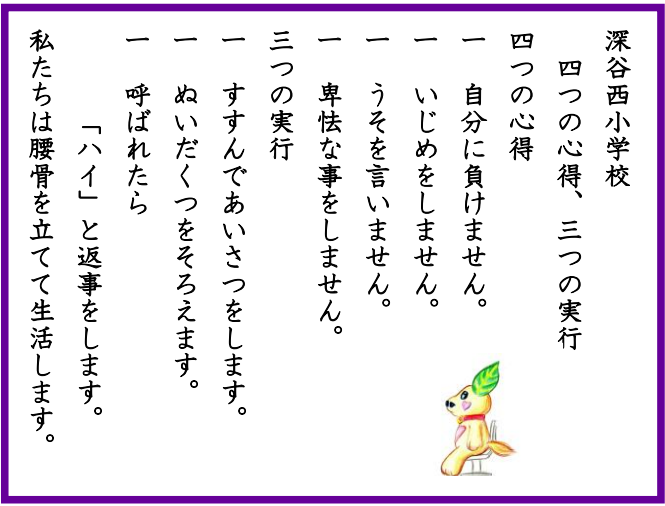 深谷西小学校
四つの心得、三つの実行
四つの心得
一　自分に負けません。
一　いじめをしません。
一　うそを言いません。
一　卑怯な事をしません。
三つの実行
一　すすんであいさつをします。
一　ぬいだくつをそろえます。
一　呼ばれたら
「ハイ」と返事をします。
私たちは腰骨を立てて生活します。